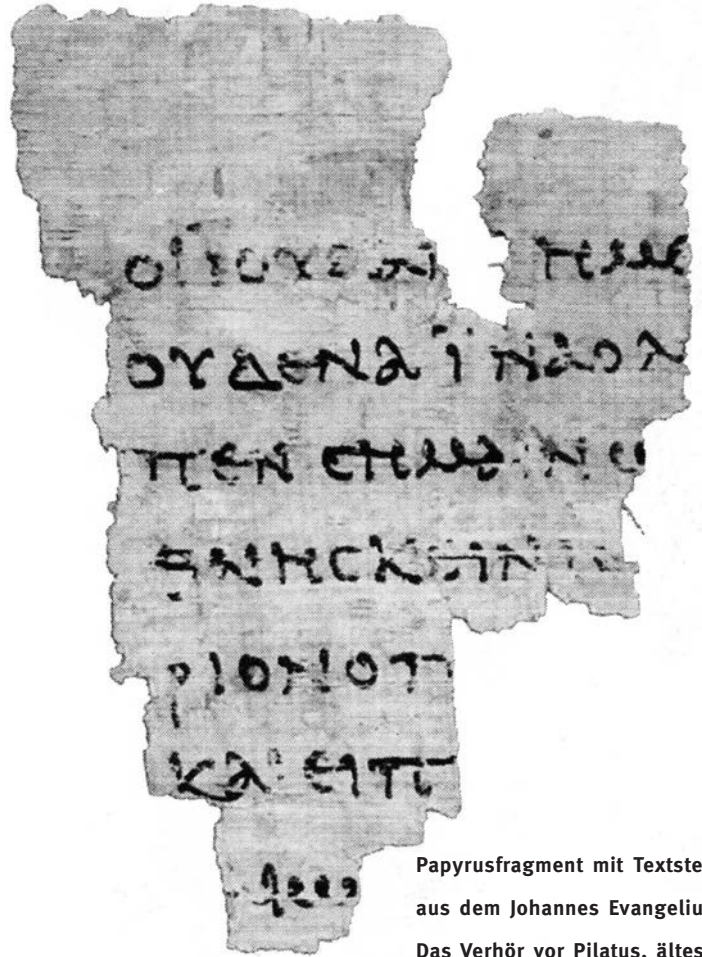 ΟΙ ΙΟΥΔΑΙ ΗΜΕ
ΟΥΔΕΝΑ ΪΝΑ Ο Λ
ΠΕΝ ϹΗΜΑΙΝΩ
ΘΝΗϹΚΕΙΝ
ΡΙΟΝ Ο Π
ΚΑΙ ΕΙΠ
Papyrusfragment mit Textste
aus dem Johannes Evangeliu
Das Verhör vor Pilatus, ältes